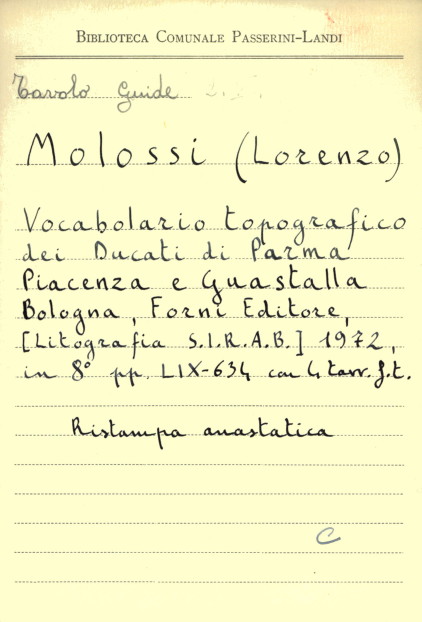 BIBLIOTECA COMUNALE PASSERINI-LANDI
Tavolo Guide
Molossi (Lorenzo)
Vocabolario topografico
dei Ducati di Parma
Piacenza e Guastalla
Bologna, Forni Editore,
[Litografia S.I.R.A.B.] 1972,
in 8° pp. LIX-634 con 4 tavv. f.t.
Ristampa anastatica
C